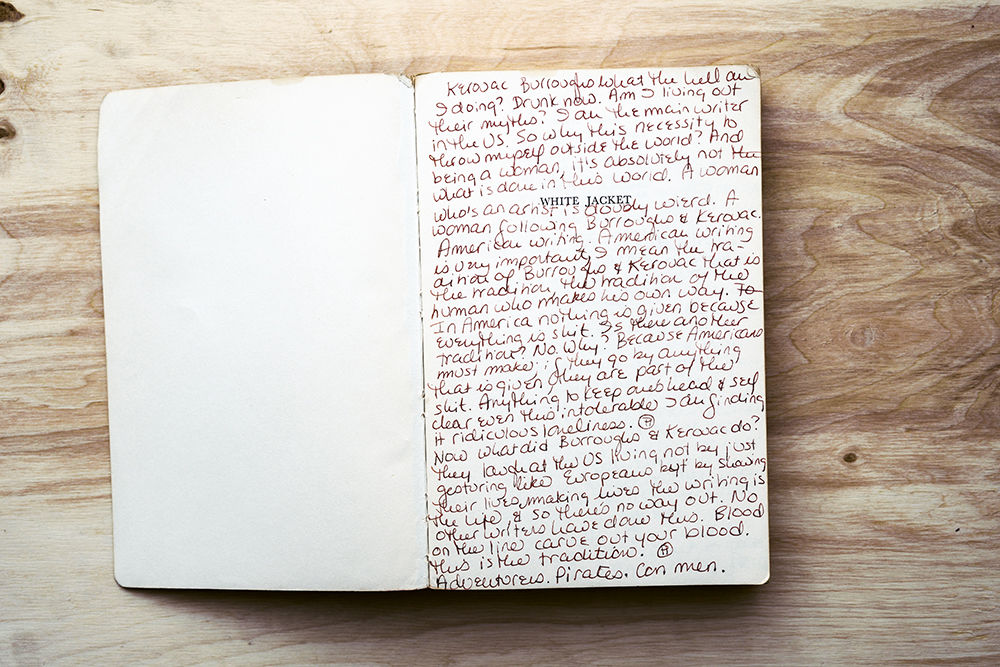 Kerouac Burroughs what the hell am
I doing? Drunk now. Am I living out
their myths? I am the main writer
in the US. So why this necessity to
throw myself outside the world? And
being a woman, it's absolutely not the
what is done in this world. A woman
WHITE JACKET
who's an artist is doubly wierd. A
woman following Burroughs & Kerouac.
American writing. American writing
is very important, I mean the tra-
dition of Burroughs & Kerouac that is
the tradition the tradition of the
human who makes his own way. To
In America nothing is given because
everything is shit. Is there another
tradition? No. Why? Because Americans
must make: if they go by anything
that is given they are part of the
shit. Anything to keep one's head & self
clear even this intolerable I am finding
it ridiculous loneliness.
Now what did Burroughs & Kerouac do?
They laugh at the US living not by just
gesturing like Europeans but by showing
their lives, making lives the writing is
the life, & so there's no way out. No
other writers have done this. Blood
on the line carve out your blood.
this is the tradition.
Adventurers. Pirates. Con men.